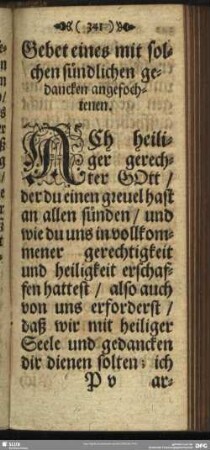 ( 341 )
Gebet eines mit sol-
chen sündlichen ge-
dancken angefoch-
tenen.
ACh heili-
ger gerech-
ter GOtt /
der du einen greuel hast
an allen sünden / und
wie du uns in vollkom-
mener gerechtigkeit
und heiligkeit erschaf-
fen hattest / also auch
von uns erforderst /
daß wir mit heiliger
Seele und gedancken
dir dienen solten: ich
P v ar-
SLUB
DFG